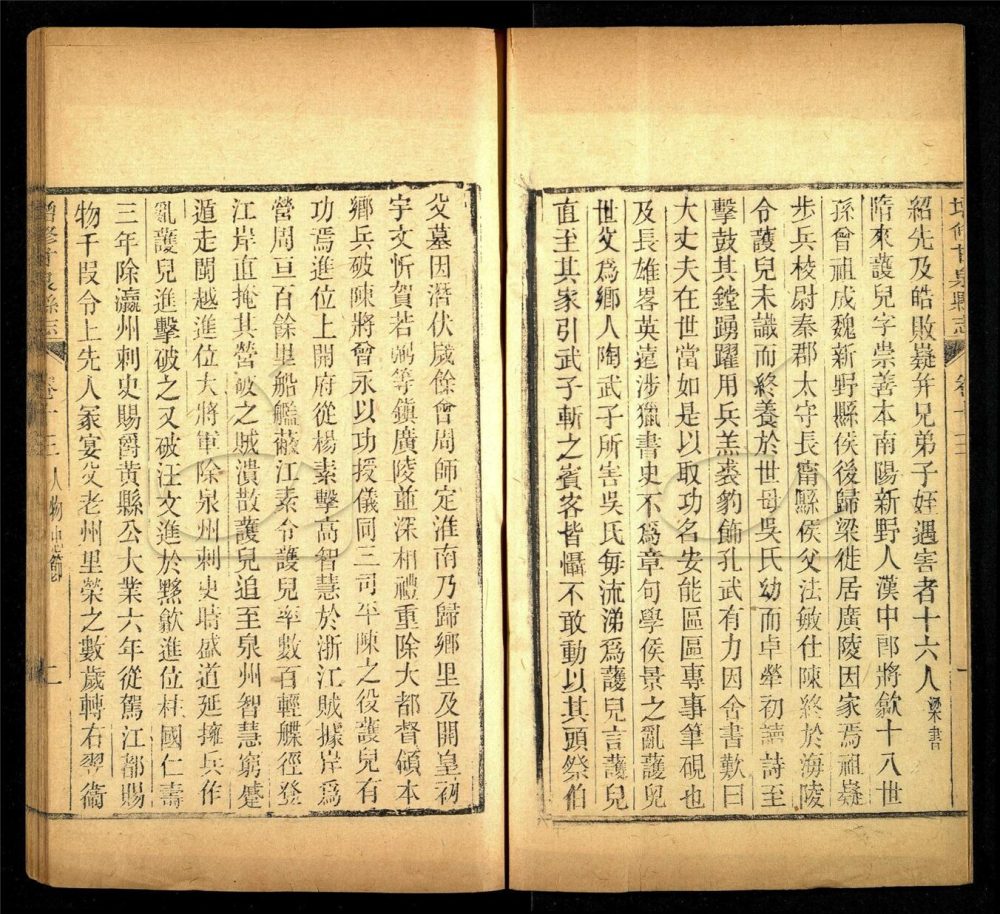 增修甘泉縣志 卷十三
紹先及皓敗嶷并兄弟子姪遇害者十六人梁書
隋來護兒字崇善本南陽新野人漢中郎將歙十八世
孫曾祖成魏新野縣侯後歸梁徙居廣陵因家焉祖嶷
步兵校尉秦郡太守長甯縣侯父法敏仕陳終於海陵
令護兒未識而終養於世母吳氏幼而卓犖初讀詩至
擊鼓其鏜踴躍用兵羔裘豹飾孔武有力因舍書歎曰
大丈夫在世當如是以取功名安能區區專事筆硯也
及長雄畧英遠涉獵書史不爲章句學侯景之亂護兒
世父爲鄉人陶武子所害吳氏每流涕爲護兒言護兒
直至其家引武子斬之賓客皆懾不敢動以其頭祭伯
父墓因潛伏歲餘會周師定淮南乃歸鄉里及開皇初
宇文忻賀若弼等鎮廣陵並深相禮重除大都督領本
鄉兵破陳將曾永以功授儀同三司平陳之役護兒有
功焉進位上開府從楊素擊高智慧於浙江賊據岸爲
營周亘百餘里船艦蔽江素令護兒率數百輕艓徑登
江岸直掩其營破之賊潰散護兒追至泉州智慧窮蹙
遁走閩越進位大將軍除泉州刺史時盛道延擁兵作
亂護兒進擊破之又破汪文進於黟歙進位柱國仁壽
三年除瀛州刺史賜爵黃縣公大業六年從駕江都賜
物千段令上先人冢宴父老州里榮之數歲轉右翊衞
增修甘泉縣志 卷十三 人物 忠節